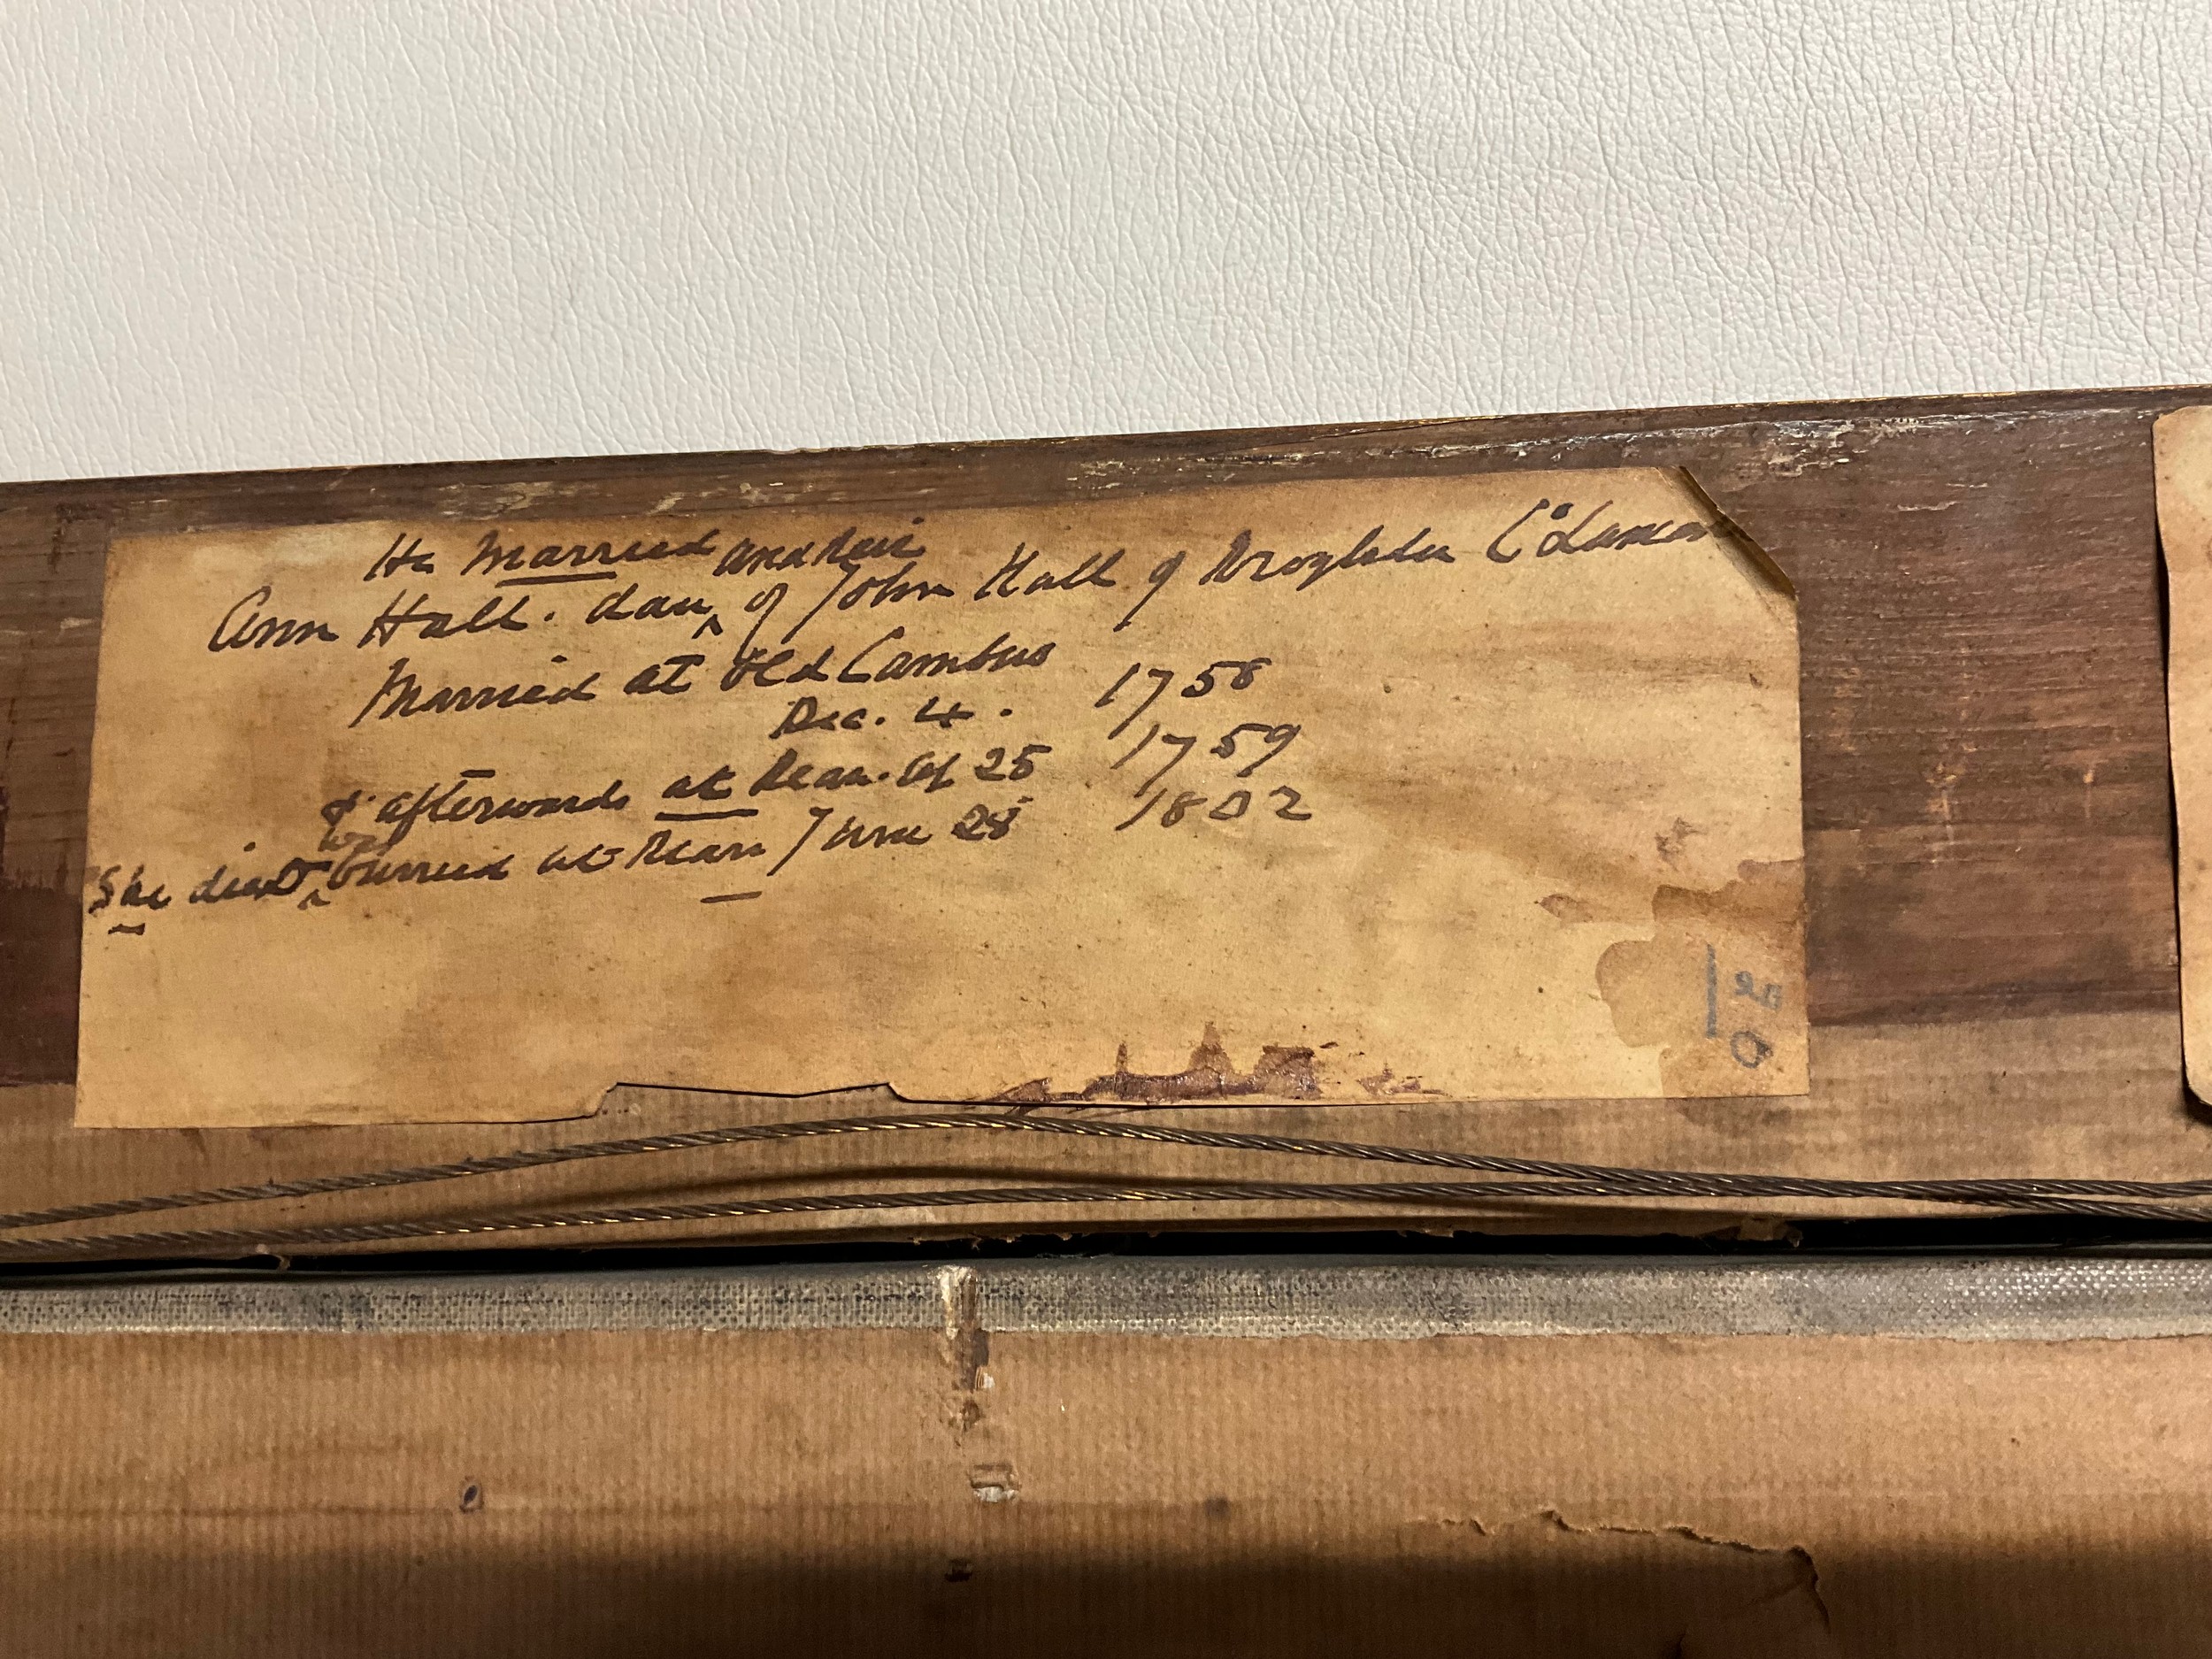 He Married
and heir
Ann Hall. dau ^ of John Hall of Droylsden Co Lancas
Married at Old Cambus
Dec. 4. 1758
& afterwards at Dean. Ap 25 1759
was
She died ^ burried at Dean June 28 1802
20